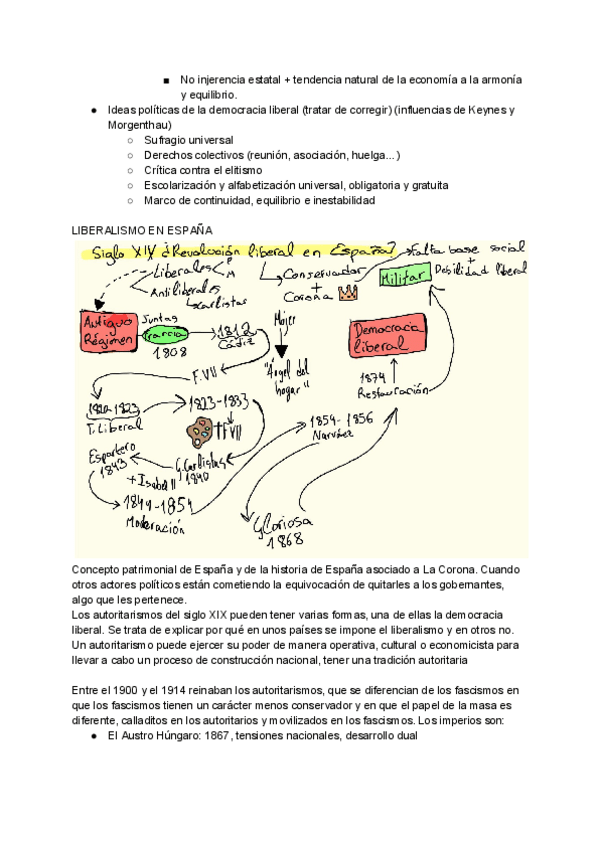 ■ No injerencia estatal + tendencia natural de la economía a la armonía
y equilibrio.
● Ideas políticas de la democracia liberal (tratar de corregir) (influencias de Keynes y
Morgenthau)
○ Sufragio universal
○ Derechos colectivos (reunión, asociación, huelga...)
○ Crítica contra el elitismo
○ Escolarización y alfabetización universal, obligatoria y gratuita
○ Marco de continuidad, equilibrio e inestabilidad
LIBERALISMO EN ESPAÑA
Siglo XIX ¿Revolución liberal en España?
Falta base social
+
Debilidad liberal
Liberales
M
Antiliberales
carlistas
Conservador
+
Corona
Militar
Antiguo
Régimen
Juntas
Francia
1808
1812
Cádiz
Mujer
"Ángel del
hogar"
Democracia
liberal
1874
Restauración
F.VII
1820-1823
T. Liberal
1823-1833
†FVII
1854-1856
Narváez
Espartero
1843
G. Carlistas
1840
+ Isabel II
1844-1854
Moderación
Gloriosa
1868
Concepto patrimonial de España y de la historia de España asociado a La Corona. Cuando
otros actores políticos están cometiendo la equivocación de quitarles a los gobernantes,
algo que les pertenece.
Los autoritarismos del siglo XIX pueden tener varias formas, una de ellas la democracia
liberal. Se trata de explicar por qué en unos países se impone el liberalismo y en otros no.
Un autoritarismo puede ejercer su poder de manera operativa, cultural o economicista para
llevar a cabo un proceso de construcción nacional, tener una tradición autoritaria
Entre el 1900 y el 1914 reinaban los autoritarismos, que se diferencian de los fascismos en
que los fascismos tienen un carácter menos conservador y en que el papel de la masa es
diferente, calladitos en los autoritarios y movilizados en los fascismos. Los imperios son:
● El Austro Húngaro: 1867, tensiones nacionales, desarrollo dual